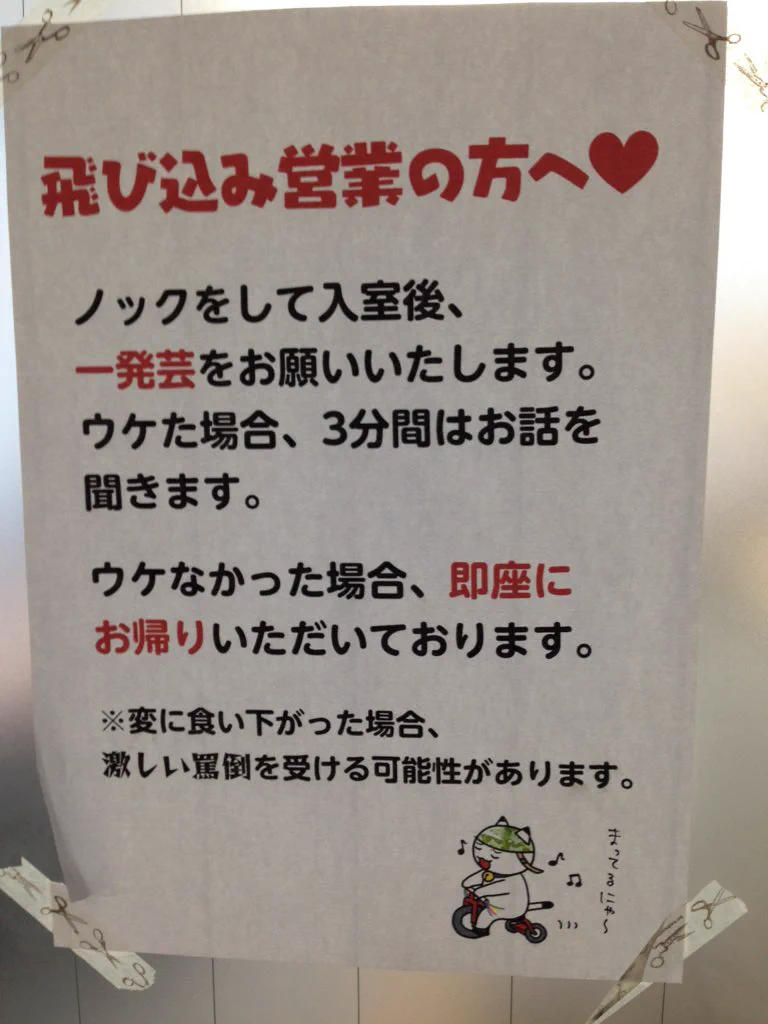 飛び込み営業の方へ♥
ノックをして入室後、
一発芸をお願いいたします。
ウケた場合、3分間はお話を
聞きます。
ウケなかった場合、即座に
お帰りいただいております。
※変に食い下がった場合、
激しい罵倒を受ける可能性があります。
まってるにゃ〜